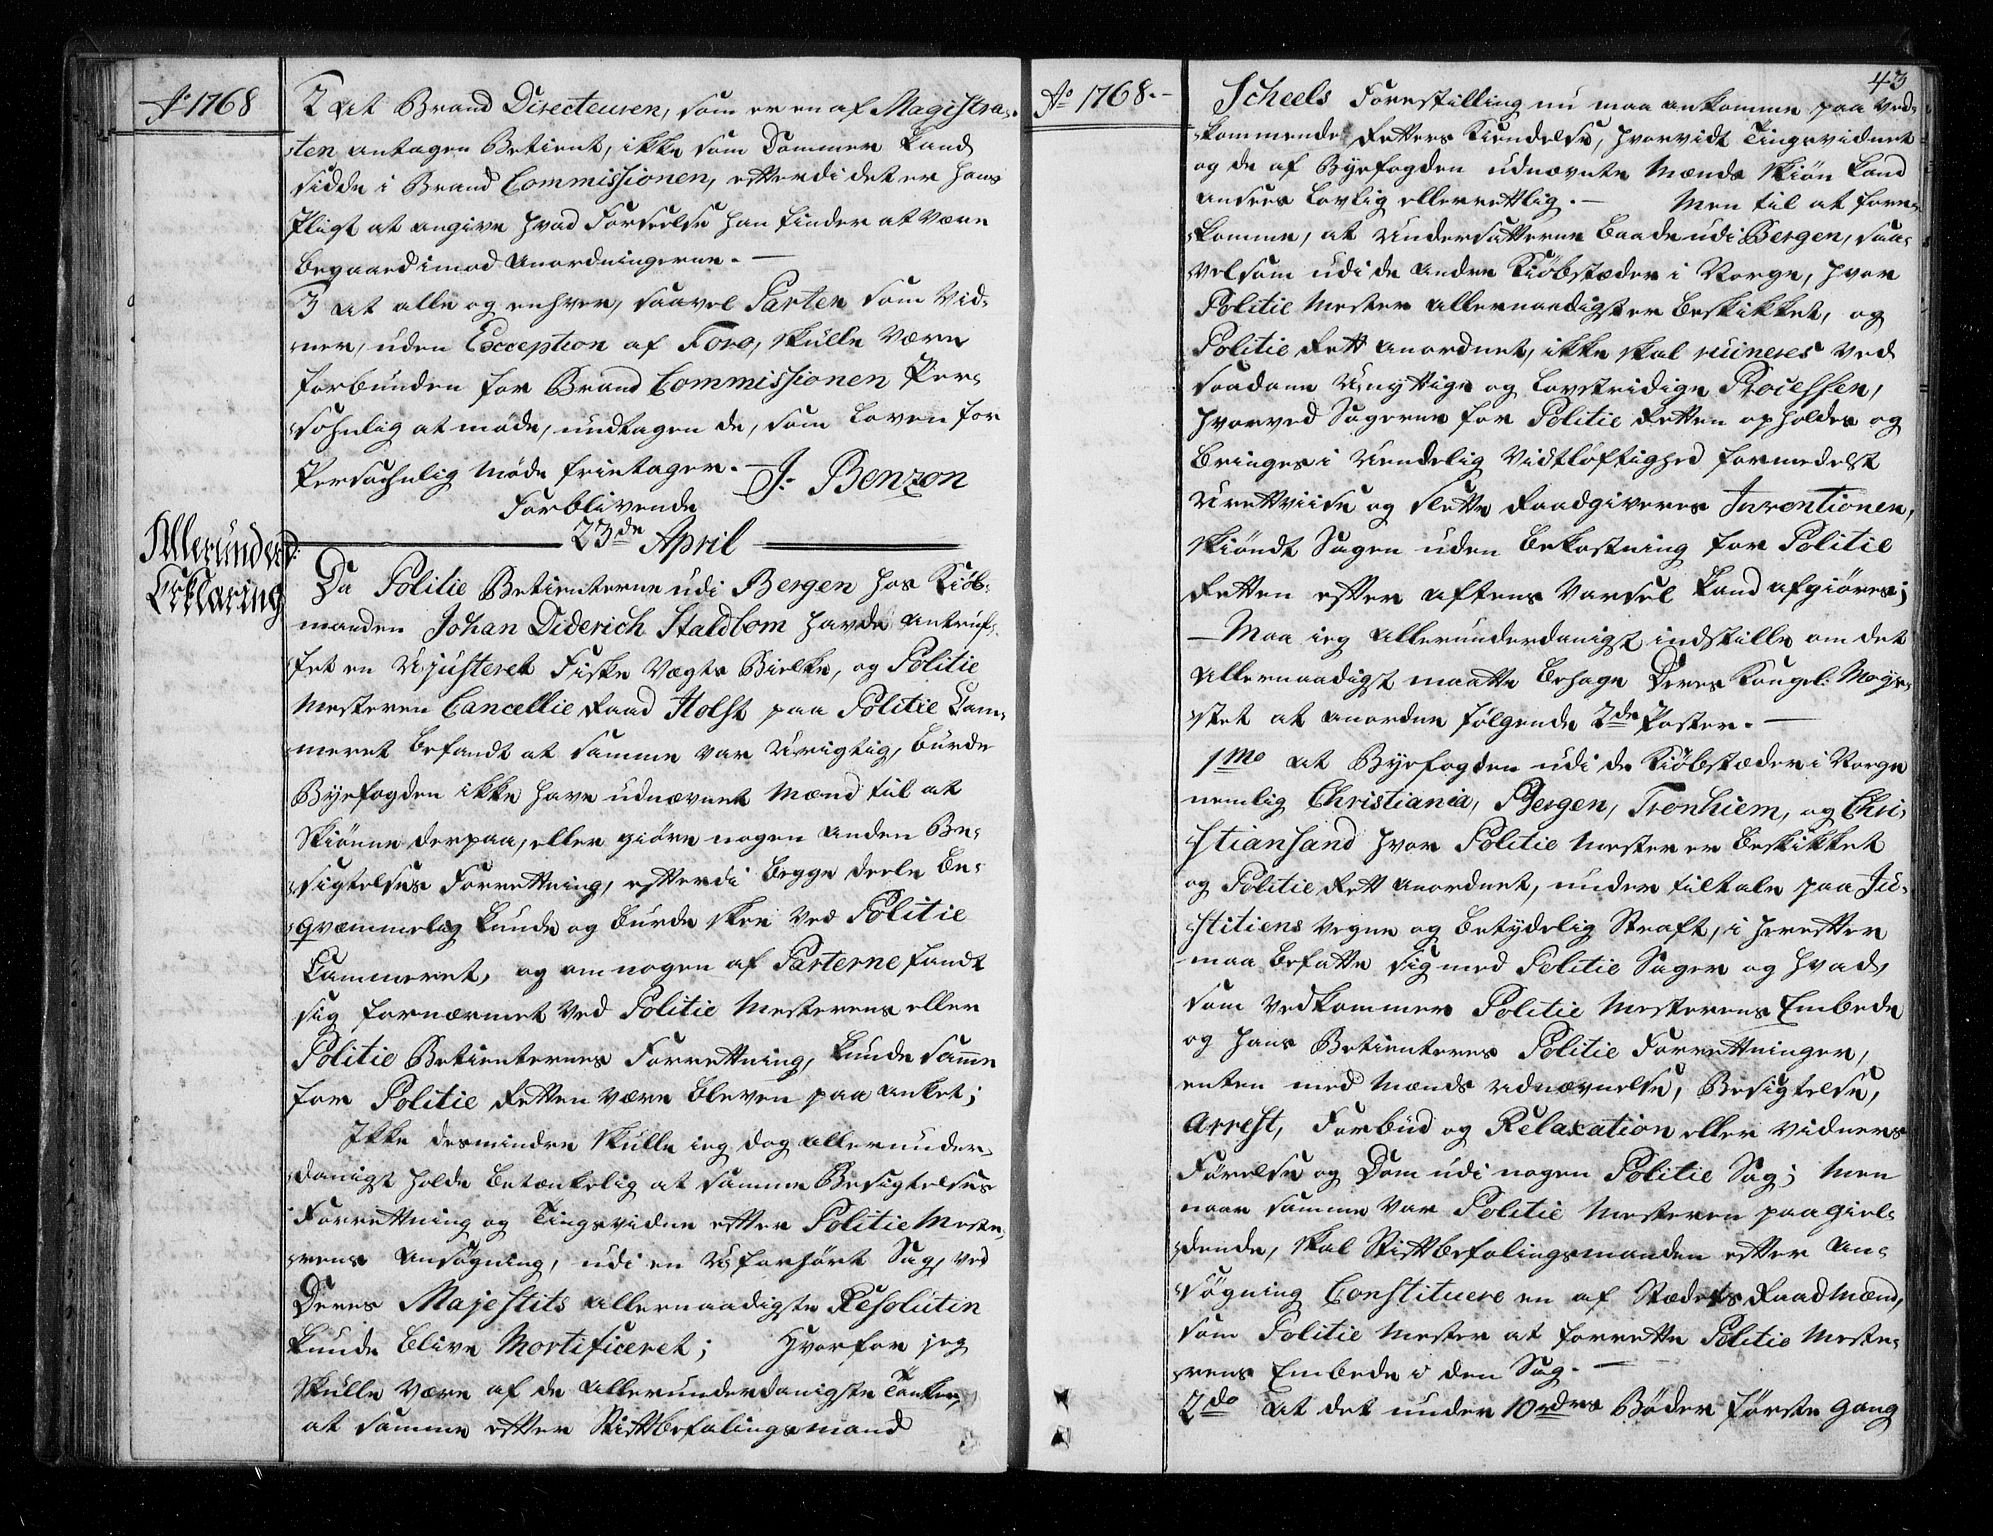 Ao 1768
2 At Brand Directeuren, som er en af Magistra-
-ten antagen Betient, ikke som Dommer kand
sidde i Brand Commissionen, efterdi det er hans
Pligt at angive hvad Forseelse han finder at være
begaaed imod Anordningerne. —
3 At alle og enhver, saavel Parten som Vid-
-ner, uden Exception af Foro, skulle være
forbunden for Brand Commissionen Per-
-sohnlig at møde, undtagen de, som Loven for
Persohnlig Møde fritager. —
Forblivende
J. Benzon
23de April
Allerunderd:
Erklæring
Da Politie Betienterne udi Bergen hos Kiøb-
manden Johan Diderich Staldbom havde antruf-
-fet en Ujusteret Fiske Vægts Bielke, og Politie
Mesteren Cancellie Raad Holst paa Politie Cam-
meret befandt at samme var Urigtig, burde
Byefogden ikke have udnævnet Mænd til at
skiønne derpaa, eller giøre nogen anden Be-
-sigtelses Forrettning, efterdi begge deele be-
-qvemmelig kunde og burde skee ved Politie
Cammeret, og om nogen af Parterne fandt
sig fornærmet ved Politie Mesterens eller
Politie Betienternes Forrettning, kunde samme
for Politie Retten være bleven paa anket;
Ikke desmindre skulle ieg dog allerunder-
-danigst holde betænkelig at samme Besigtelses
Forrettning og Tingsvidne efter Politie Meste-
-rens Ansøgning, udi en Uforhørt Sag, ved
Deres Majestits allernaadigste Resolutin
kunde blive Mortificeret; Hvorfor jeg
skulle være af de allerunderdanigste Tanker,
at samme efter Stiftbefalingsmand
Ao 1768. —
43
Scheels Forestilling nu maa ankomme paa Ved-
-kommende Retters Kiendelse, hvorvidt Tingsvidnet
og de af Byefogden udnævnte Mænds Skiøn kand
ansees lovlig eller rettlig. — Men til at fore-
-komme, at Undersatterne baade udi Bergen, saa-
-velsom udi de andre Kiøbstæder i Norge, hvor
Politie Mester allernaadigst er beskikket, og
Politie Rett anordnet, ikke skal ruineres ved
saadane Unyttige og lovstridige Processen,
hvorved Sagerne for Politie Retten opholdes og
bringes i Uendelig Vidtløftighed formedelst
Urettviise og slette Raadgiveres Inventionen,
skiøndt Sagen uden Bekostning for Politie
Retten efter aftens Varsel kand afgiøres;
— Maa ieg allerunderdanigst indstille om det
allernaadigst maatte behage Deres Kongel: Maje-
-stet at anordne følgende 2de Poster. —
1mo At Byefogden udi de Kiøbstæder i Norge
nemlig Christiania, Bergen, Tronhiem, og Chri-
-stiansand hvor Politie Mester er beskikket
og Politie Rett anordnet, under tiltale paa Ju-
-stitiens Vegne og betydelig Straff, i herefter
maa befatte sig med Politie Sager og hvad,
som vedkommer Politie Mesterens Embede
og hans Betienteres Politie Forrettninger,
enten med Mænds Udnævnelse, Besigtelse,
Arrest, Forbud og Relaxation eller Vidners
Førelse og Dom udi nogen Politie Sag; Men
naar samme var Politie Mesteren paagiel-
-dende, skal Stiftbefalingsmanden efter An-
-søgning Constituere en af Stædets Raadmænd,
som Politie Mester at forrette Politie Meste-
-rens Embede i den Sag. —
2do At det under 10 rdrs Bøder første gang